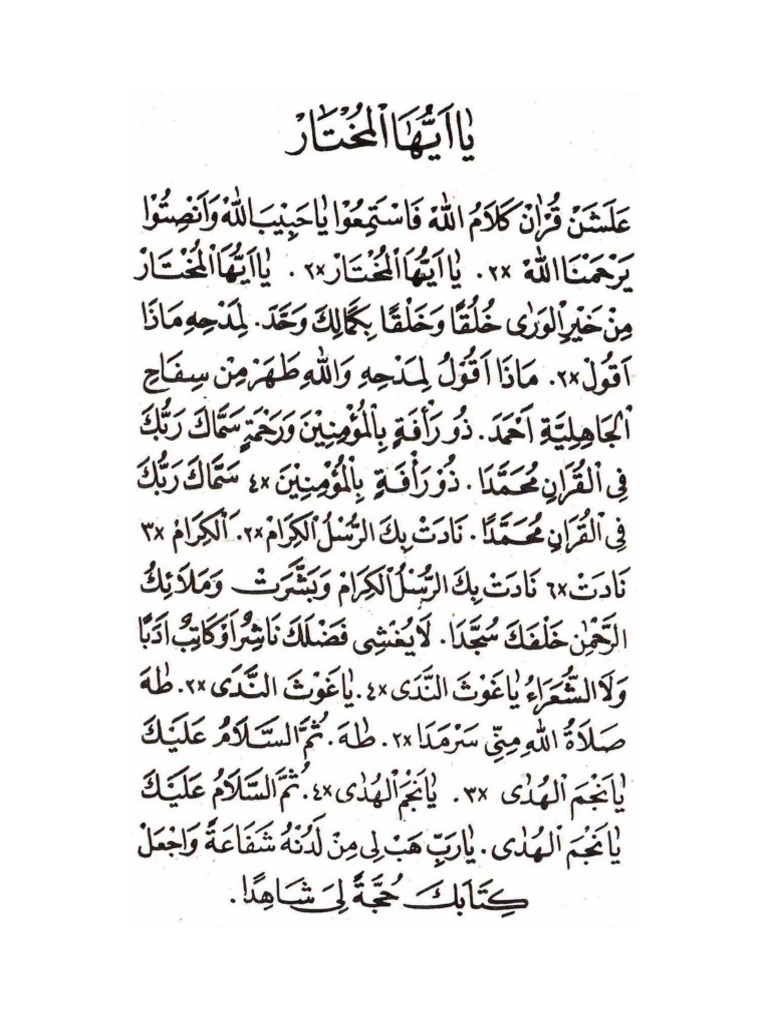 يَا اَيُّهَا الْمُخْتَارْ
عَلَشَنْ قُرْاٰنْ كَلَامُ اللهْ فَاسْتَمِعُوْا يَا حَبِيْبَ اللهْ وَاَنْصِتُوْا
يَرْحَمْنَا اللهْ ×٢. يَا اَيُّهَا الْمُخْتَارْ ×٢. يَا اَيُّهَا الْمُخْتَارْ
مِنْ خَيْرِ الْوَرٰى خُلُقًا وَخَلْقًا بِكَمَالِكَ وَحَّدَ. لِمَدْحِهِ مَاذَا
اَقُولْ ×٢. مَاذَا اَقُوْلُ لِمَدْحِهِ وَاللهِ طَهَرْ مِنْ سِفَاحِ
الْجَاهِلِيَّةِ اَحْمَدَ. ذُو رَأْفَةٍ بِالْمُؤْمِنِيْنَ وَرَحْمَةٍ سَمَّاكَ رَبُّكَ
فِى الْقُرَانِ مُحَمَّدَا. ذُوْ رَأْفَةٍ بِالْمُؤْمِنِيْنَ ×٤ سَمَّاكَ رَبُّكَ
فِى الْقُرَانِ مُحَمَّدًا. نَادَتْ بِكَ الرُّسْلُ الْكِرَامْ ×٢. اَلْكِرَامْ ×٣
نَادَتْ ×٦ نَادَتْ بِكَ الرُّسْلُ الْكِرَامْ وَبَشَّرَتْ وَمَلَائِكُ
الرَّحْمٰنِ خَلْفَكَ سُجَّدَا. لَا يُغْشِى فَضْلَكَ نَاشِرْ اَوْ كَاتِبْ اَدَبًا
وَلَا الشُّعَرَاءُ يَا غَوْثَ النَّدَى ×٤. يَا غَوْثَ النَّدَى ×٢. طٰهَ
صَلَاةُ اللهِ مِنِّى سَرْمَدَا ×٢. طٰهَ. ثُمَّ السَّلَامُ عَلَيْكَ
يَا نَجْمَ الْهُدٰى ×٣. يَا نَجْمَ الْهُدٰى ×٤. ثُمَّ السَّلَامُ عَلَيْكَ
يَا نَجْمَ الْهُدٰى. يَارَبِّ هَبْ لِى مِنْ لَدُنْهُ شَفَاعَةً وَاجْعَلْ
كِتَابَكَ حُجَّةً لِىَ شَاهِدًا.